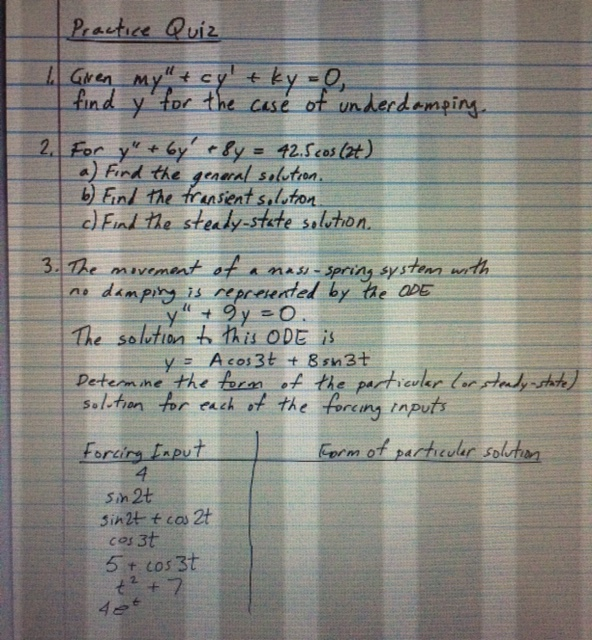 Practice Quiz
1. Given my" + cy' + ky = 0,
find y for the case of underdamping.
2. For y" + 6y' + 8y = 42.5 cos(2t)
a) Find the general solution.
b) Find the transient solution
c) Find the steady-state solution.
3. The movement of a mass-spring system with
no damping is represented by the ODE
y" + 9y = 0.
The solution to this ODE is
y = A cos 3t + B sin 3t
Determine the form of the particular (or steady-state)
solution for each of the forcing inputs
Forcing Input Form of particular solution
4
sin 2t
sin 2t + cos 2t
cos 3t
5 + cos 3t
t² + 7
4e^t